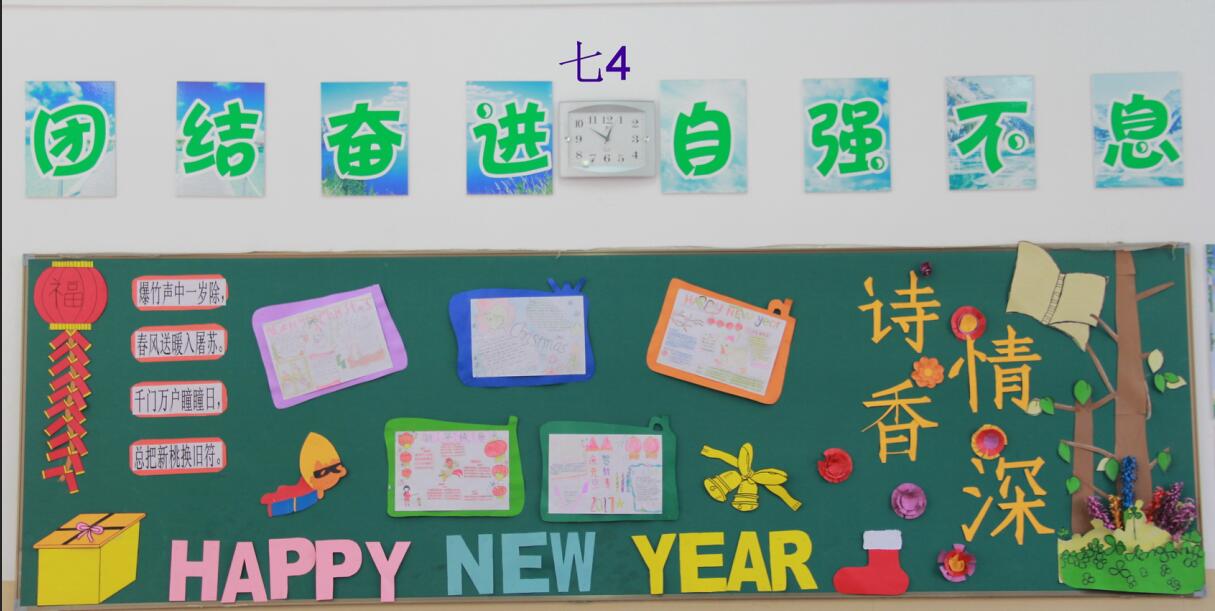 七4
团结奋进自强不息
福
爆竹声中一岁除,
春风送暖入屠苏。
千门万户曈曈日,
总把新桃换旧符。
HAPPY NEW year
Christmas
2017
诗香
情深
HAPPY NEW YEAR